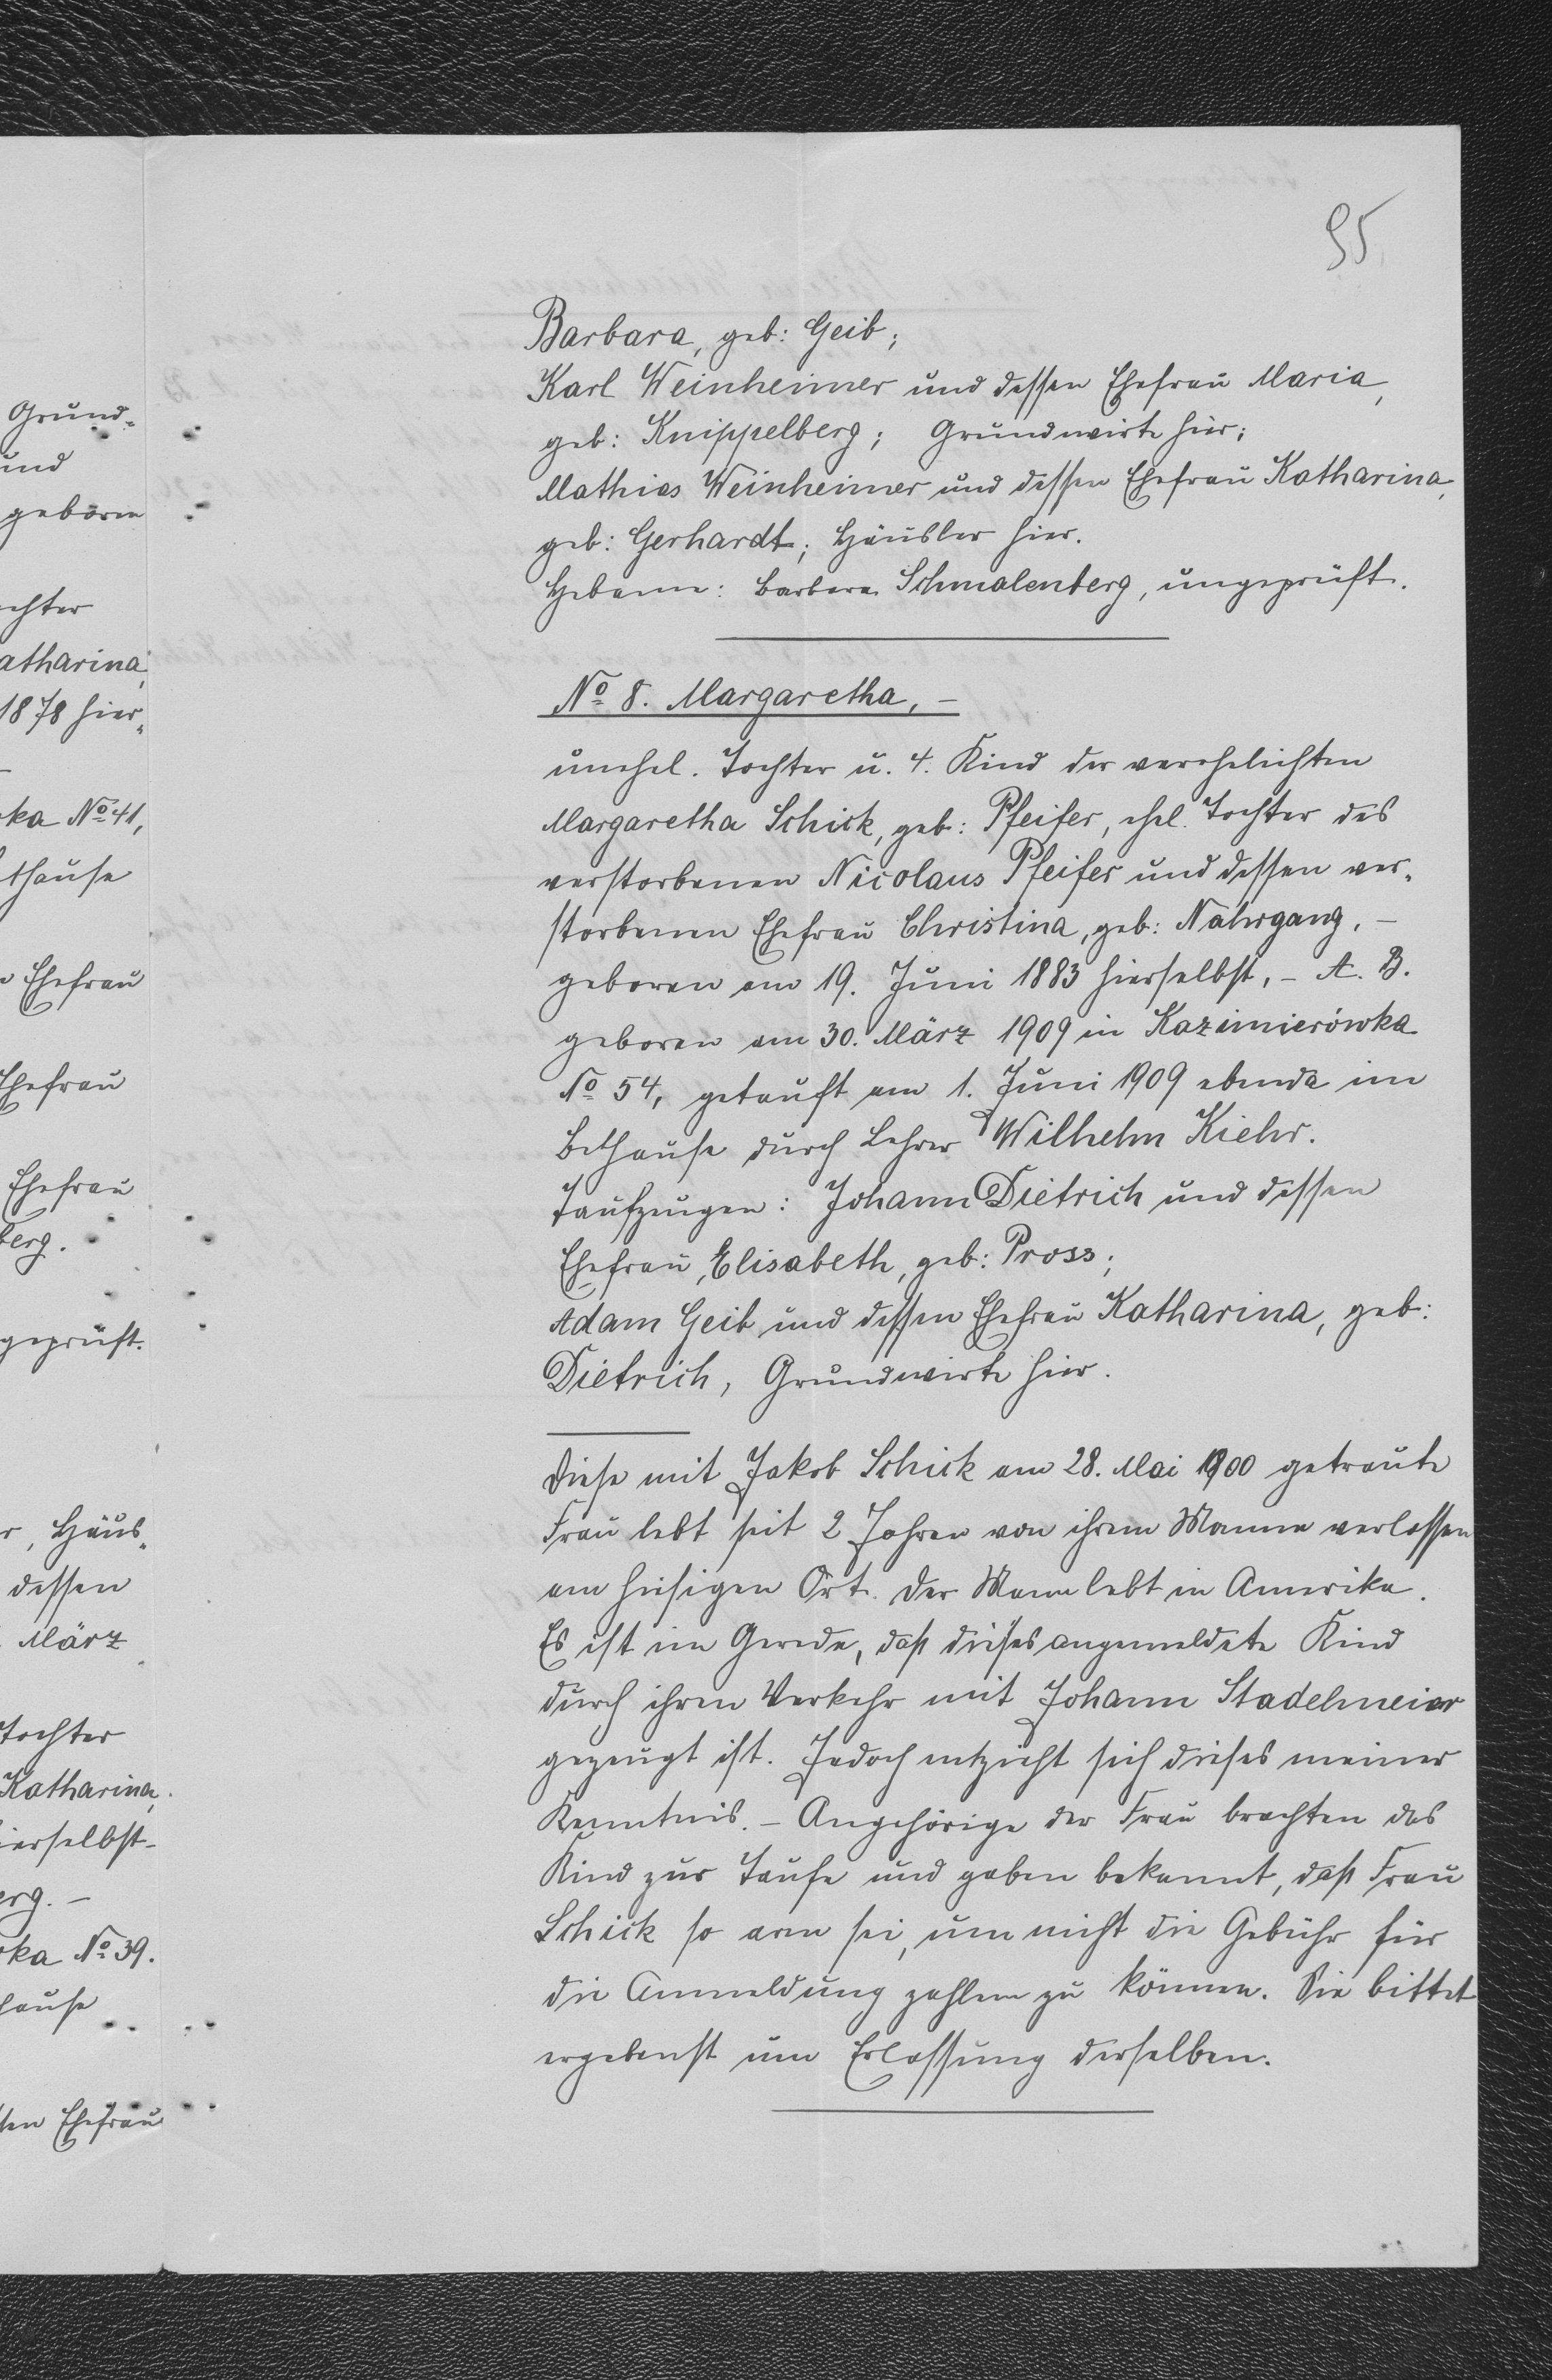 95
Barbara, geb: Geib;
Karl Weinheimer und dessen Ehefrau Maria,
geb: Knippelberg; Grundwirte hier;
Mathias Weinheimer und dessen Ehefrau Katharina,
geb: Gerhardt; Häusler hier.
Hebame: Barbara Schmalenberg, ungeprüft.
No 8. Margaretha, –
unehel. Tochter u. 4. Kind der verehelichten
Margaretha Schick, geb: Pfeifer, ehel. Tochter des
verstorbenen Nicolaus Pfeifer und dessen ver-
storbenen Ehefrau Christina, geb: Nahrgang, –
geboren am 19. Juni 1883 hierselbst, – A. B.
geboren am 30. März 1909 in Kazimierówka
No 54, getauft am 1. Juni 1909 ebenda im
Bethause durch Lehrer Wilhelm Kiehr.
Taufzeugen: Johann Dietrich und dessen
Ehefrau, Elisabeth, geb: Pross;
Adam Geib und dessen Ehefrau Katharina, geb:
Dietrich, Grundwirte hier.
Diese mit Jakob Schick am 28. Mai 1900 getraute
Frau lebt seit 2 Jahren von ihrem Manne verlassen
am hiesigen Ort. Der Mann lebt in Amerika.
Es ist im Gerede, daß dieses angemeldete Kind
durch ihren Verkehr mit Johann Stadelmeier
gezeugt ist. Jedoch entzieht sich dieses meiner
Kenntnis. – Angehörige der Frau brachten das
Kind zur Taufe und gaben bekannt, daß Frau
Schick so arm sei, um nicht die Gebühr für
die Anmeldung zahlen zu können. Sie bittet
ergebenst um Erlassung derselben.
Grund-
und
geboren
chter
atharina,
1878 hier-
ka No 41,
thause
Ehefrau
Ehefrau
Ehefrau
berg.
geprüft.
r, Häus-
dessen
März
Tochter
Katharina,
hierselbst –
erg. –
ka No 39.
hause
sen Ehefrau